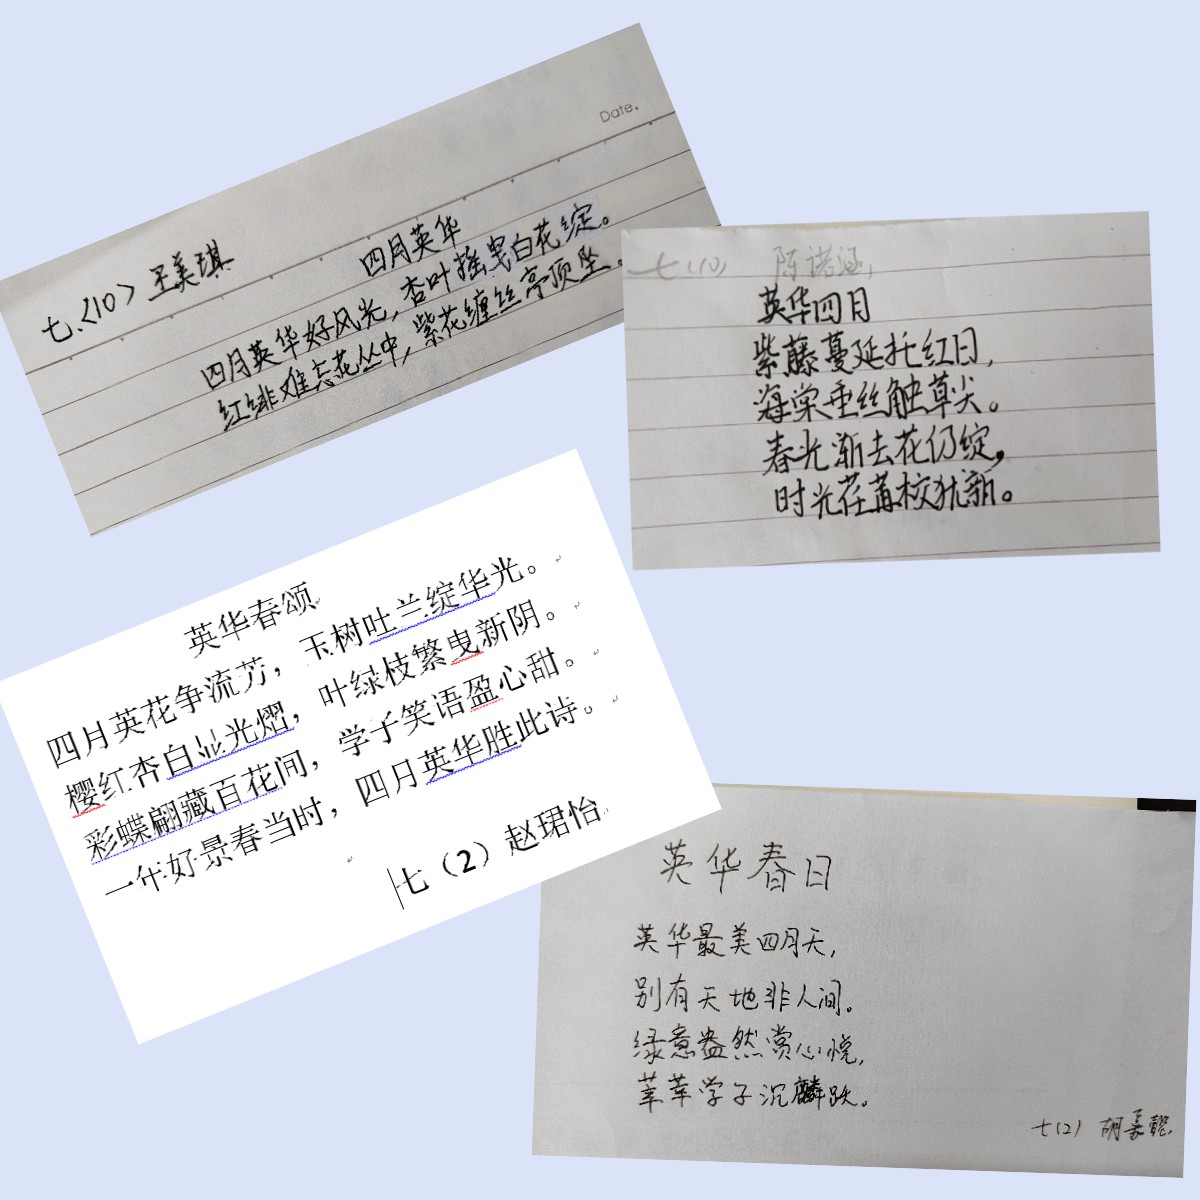 Date.
七.〈10〉王美琪
四月英华
四月英华好风光，杏叶摇曳白花绽。
红绯难忘花丛中，紫花缠丝亭顶坠。
七(10) 陈诺涵
英华四月
紫藤蔓延托红日，
海棠垂丝触草尖。
春光渐去花仍绽，
时光荏苒校犹新。
英华春颂
四月英花争流芳，玉树吐兰绽华光。
樱红杏白显光熠，叶绿枝繁曳新阴。
彩蝶翩藏百花间，学子笑语盈心甜。
一年好景春当时，四月英华胜此诗。
七（2）赵珺怡
英华春日
英华最美四月天，
别有天地非人间。
绿意盎然赏心悦，
莘莘学子沉麟跃。
七(2) 胡嘉懿